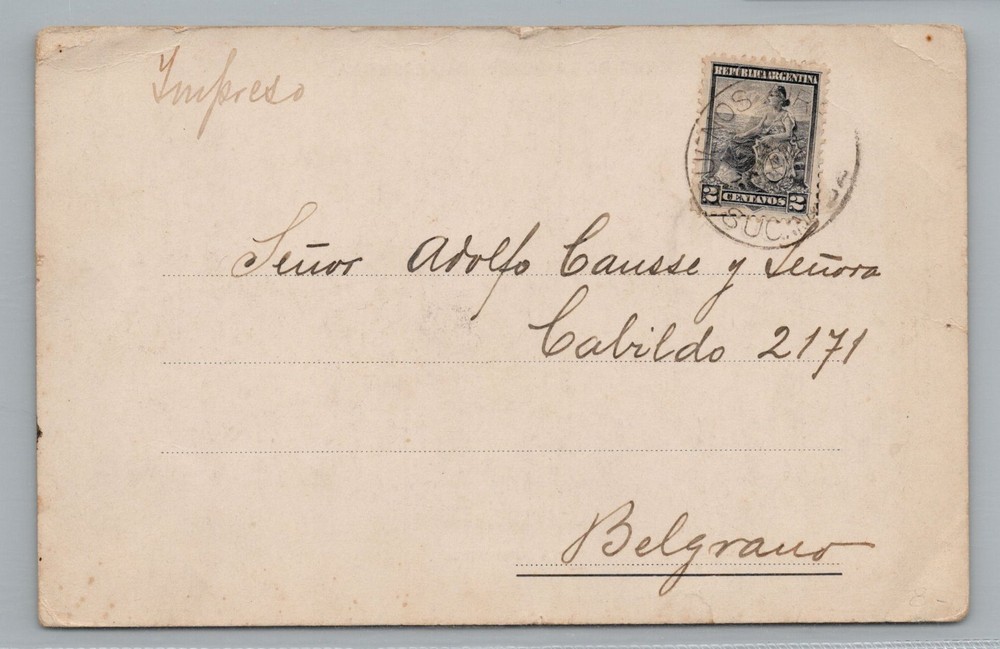 Impreso
REPÚBLICA ARGENTINA
2 CENTAVOS 2
Señor Adolfo Causse y Señora
Cabildo 2171
Belgrano